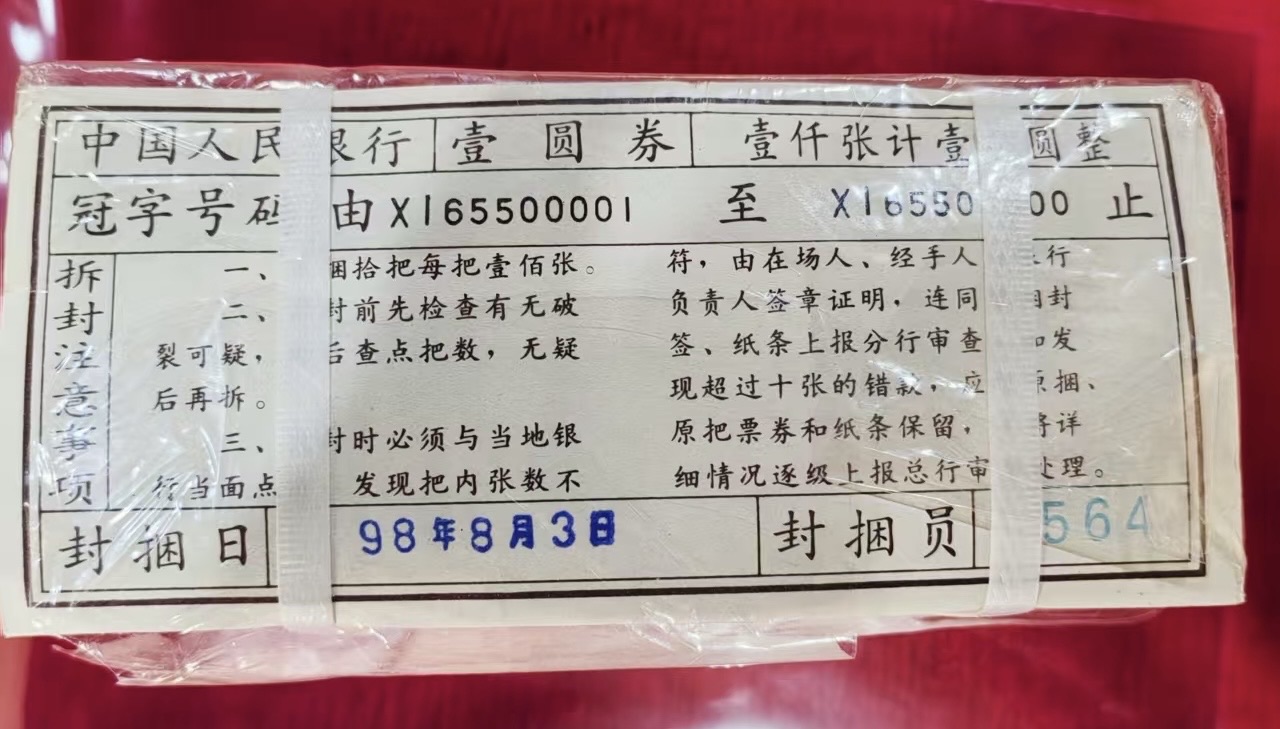 中国人民银行 壹圆券 壹仟张计壹 圆整
冠字号码 由X165500001 至 X16550 00 止
拆封注意事项
一、 捆拾把每把壹佰张。
二、 封前先检查有无破
裂可疑， 后查点把数，无疑
后再拆。
三、 封时必须与当地银
行当面点 发现把内张数不
符，由在场人、经手人 行
负责人签章证明，连同 封
签、纸条上报分行审查 如发
现超过十张的错款，应 原捆、
原把票券和纸条保留， 将详
细情况逐级上报总行审 处理。
封捆日 98年8月3日 封捆员 564